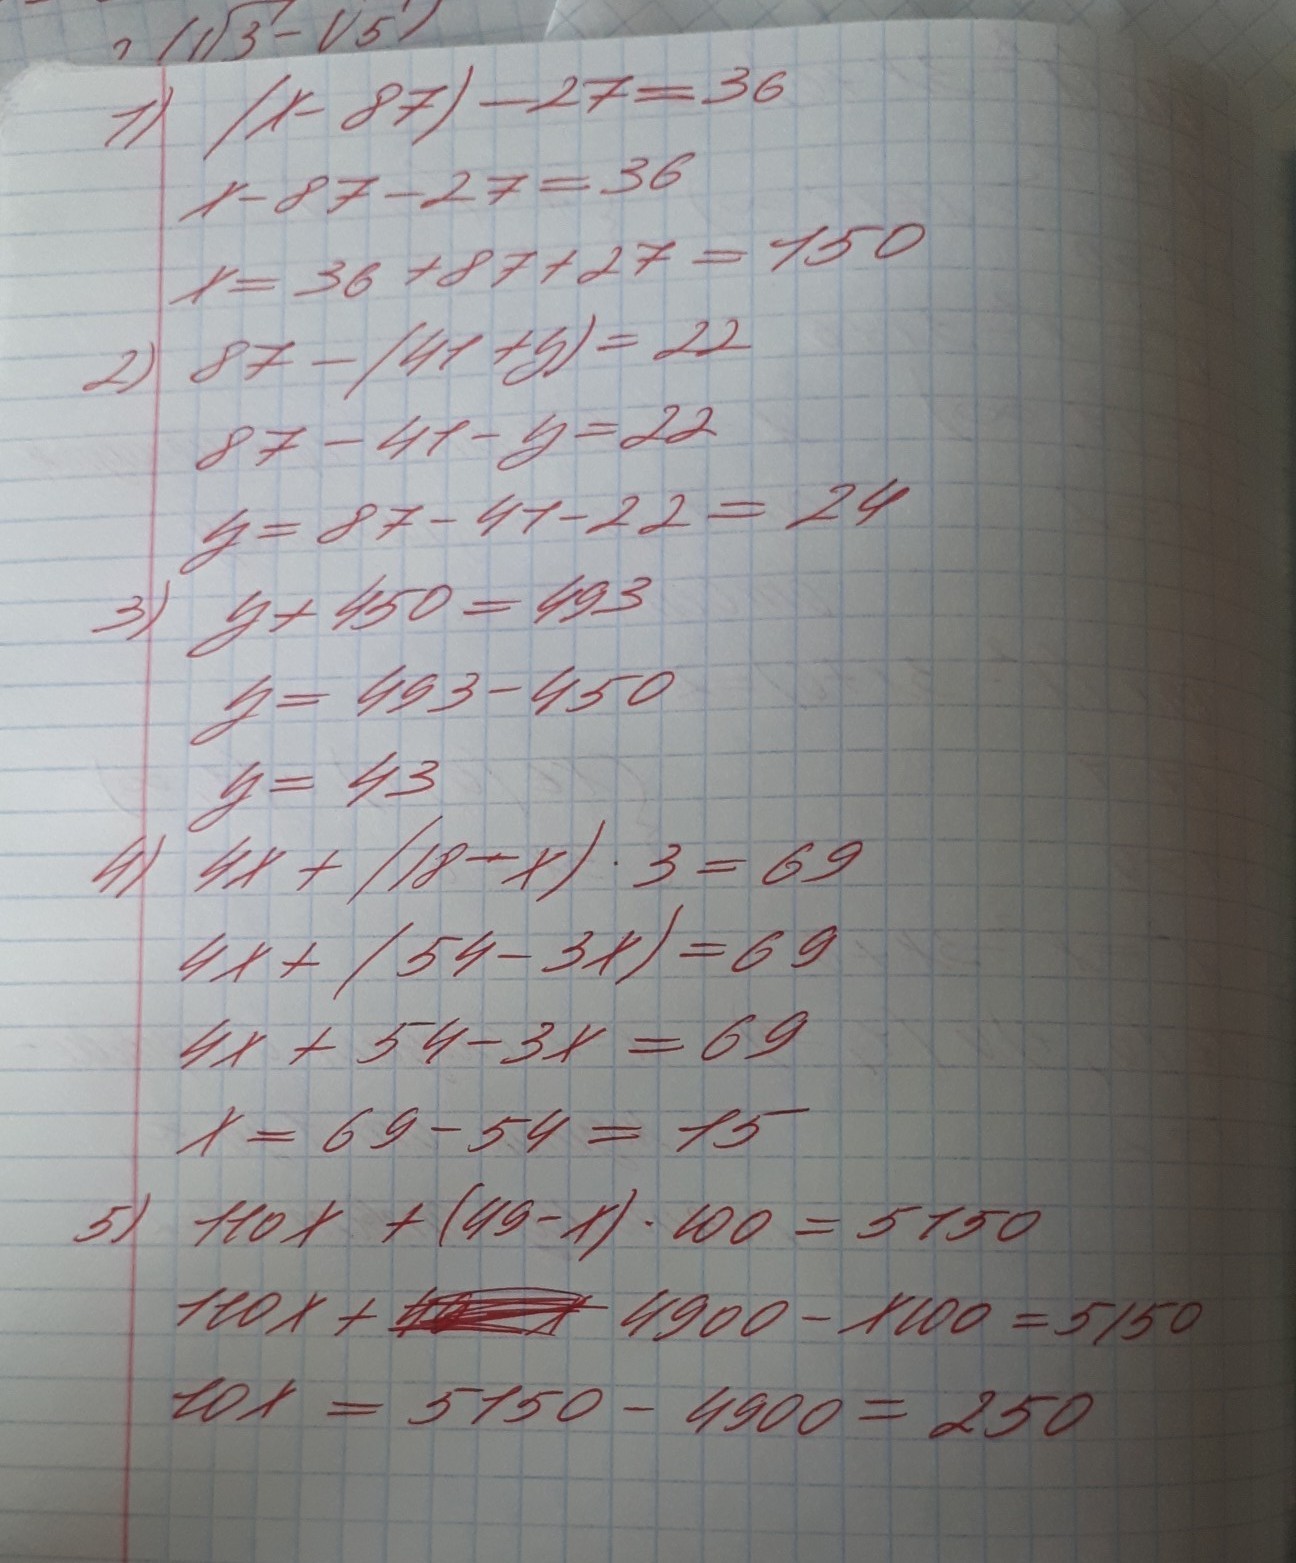 (√3-√5)
1) (x-87)-27=36
x-87-27=36
x=36+87+27=150
2) 87-(41+y)=22
87-41-y=22
y=87-41-22=24
3) y+450=493
y=493-450
y=43
4) 4x+(18-x)·3=69
4x+(54-3x)=69
4x+54-3x=69
x=69-54=15
5) 110x+(49-x)·100=5150
110x+ 4900-x100=5150
10x=5150-4900=250